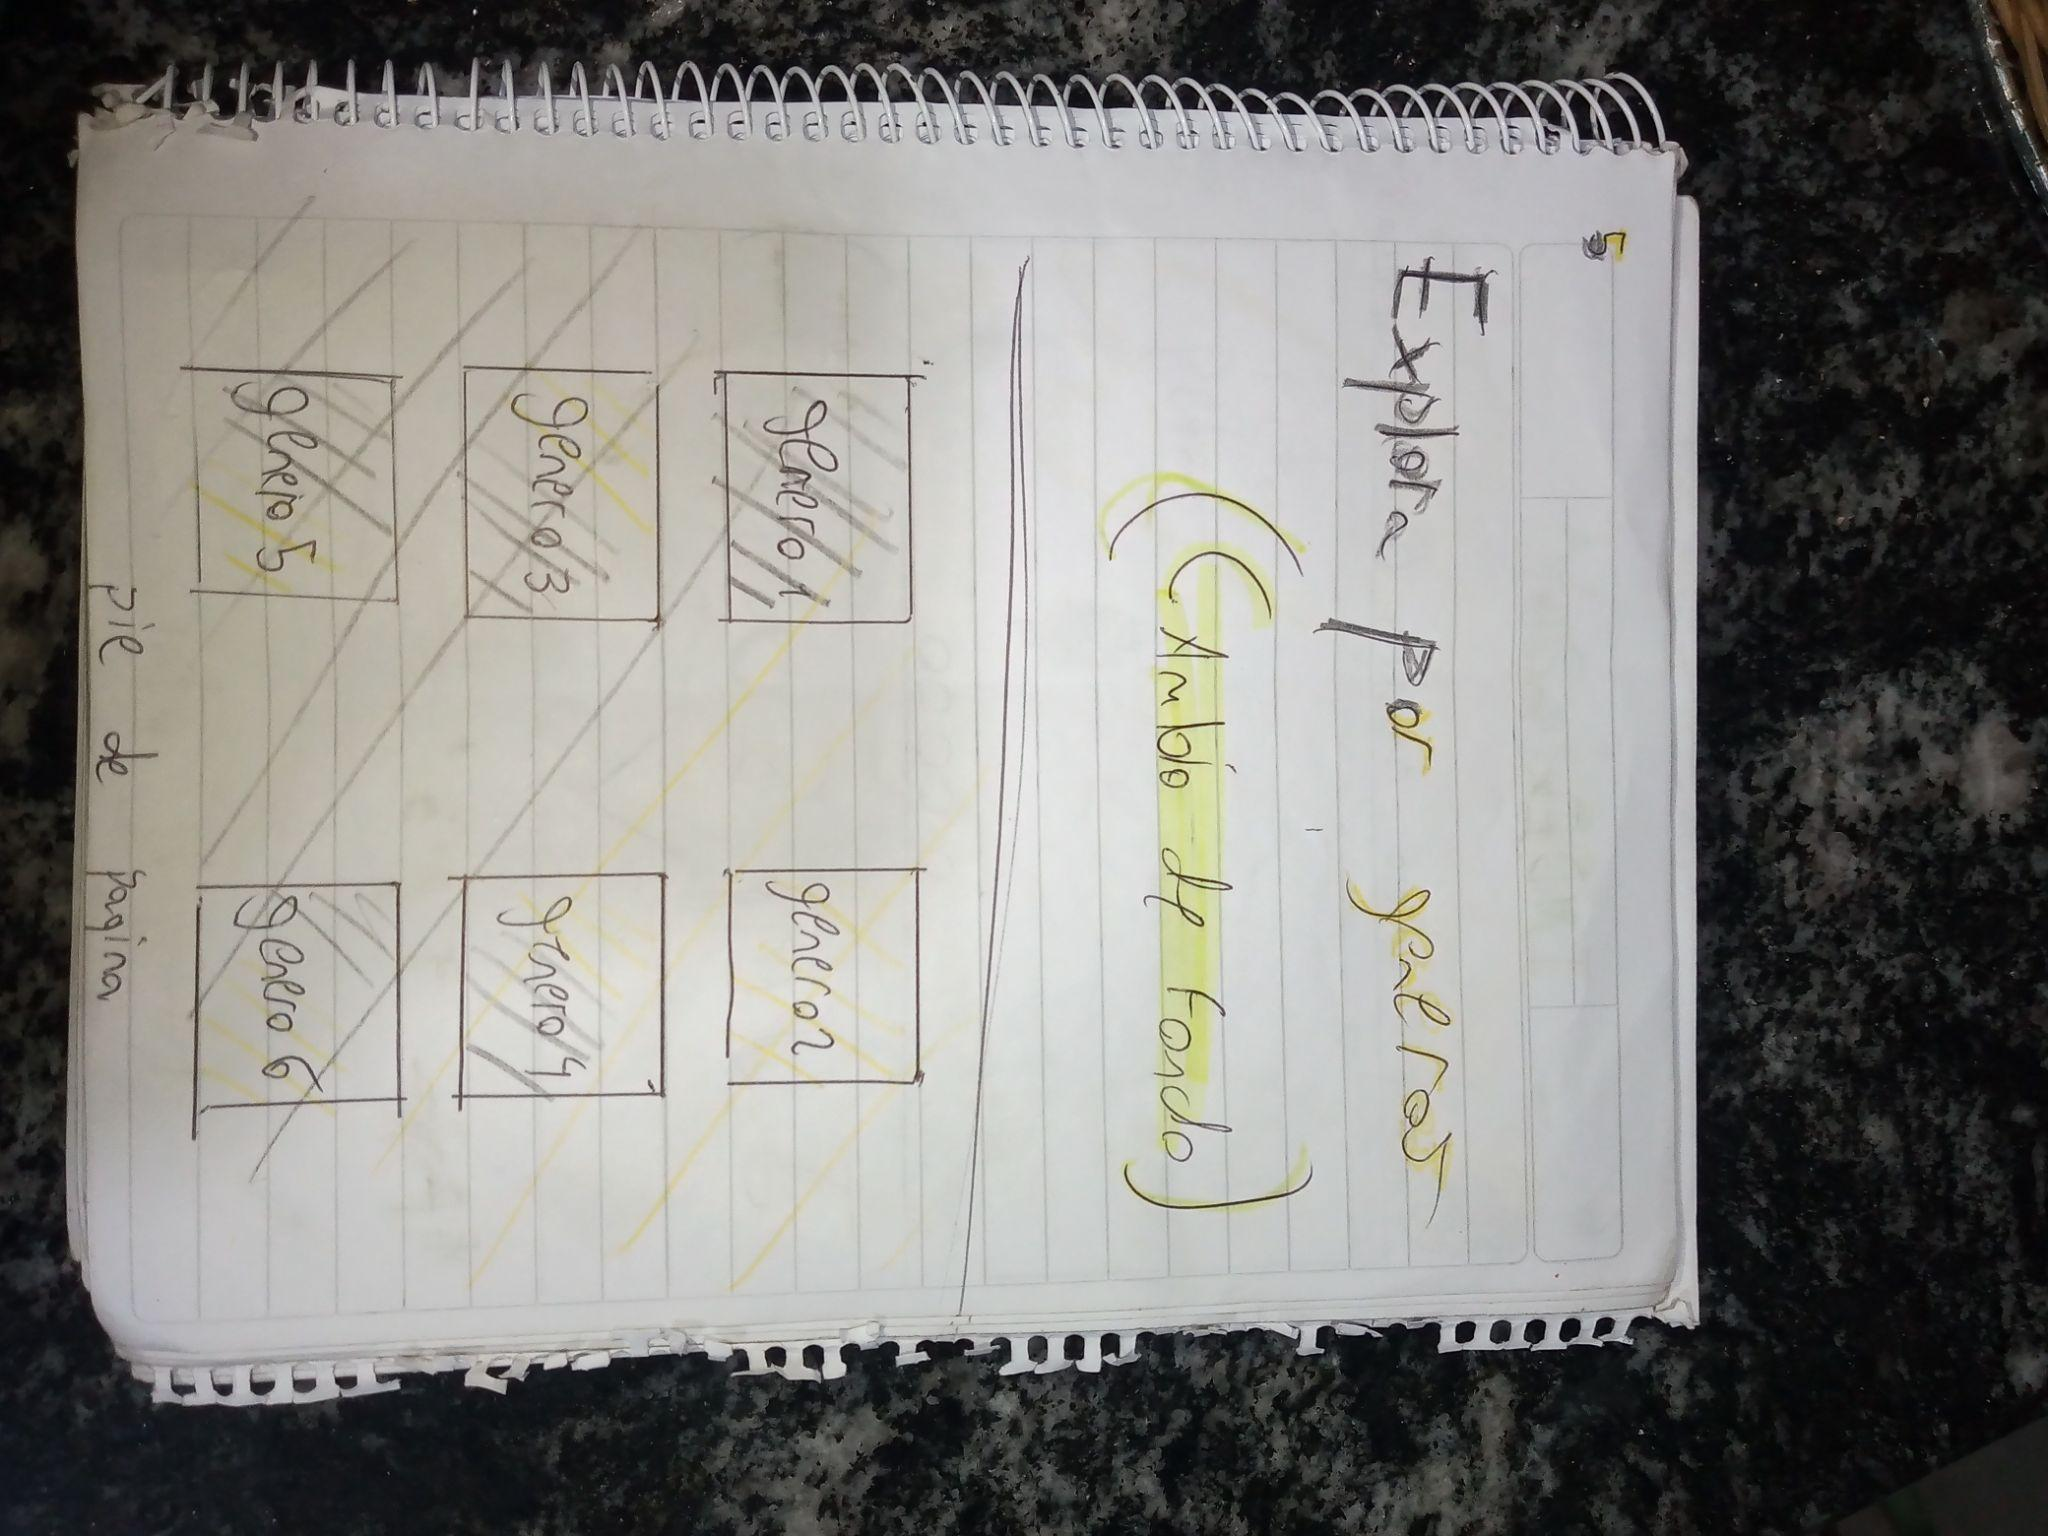 Explora por generos
(Cambio de fondo)
genero 1 genero 2
genero 3 genero 4
genero 5 genero 6
pie de pagina